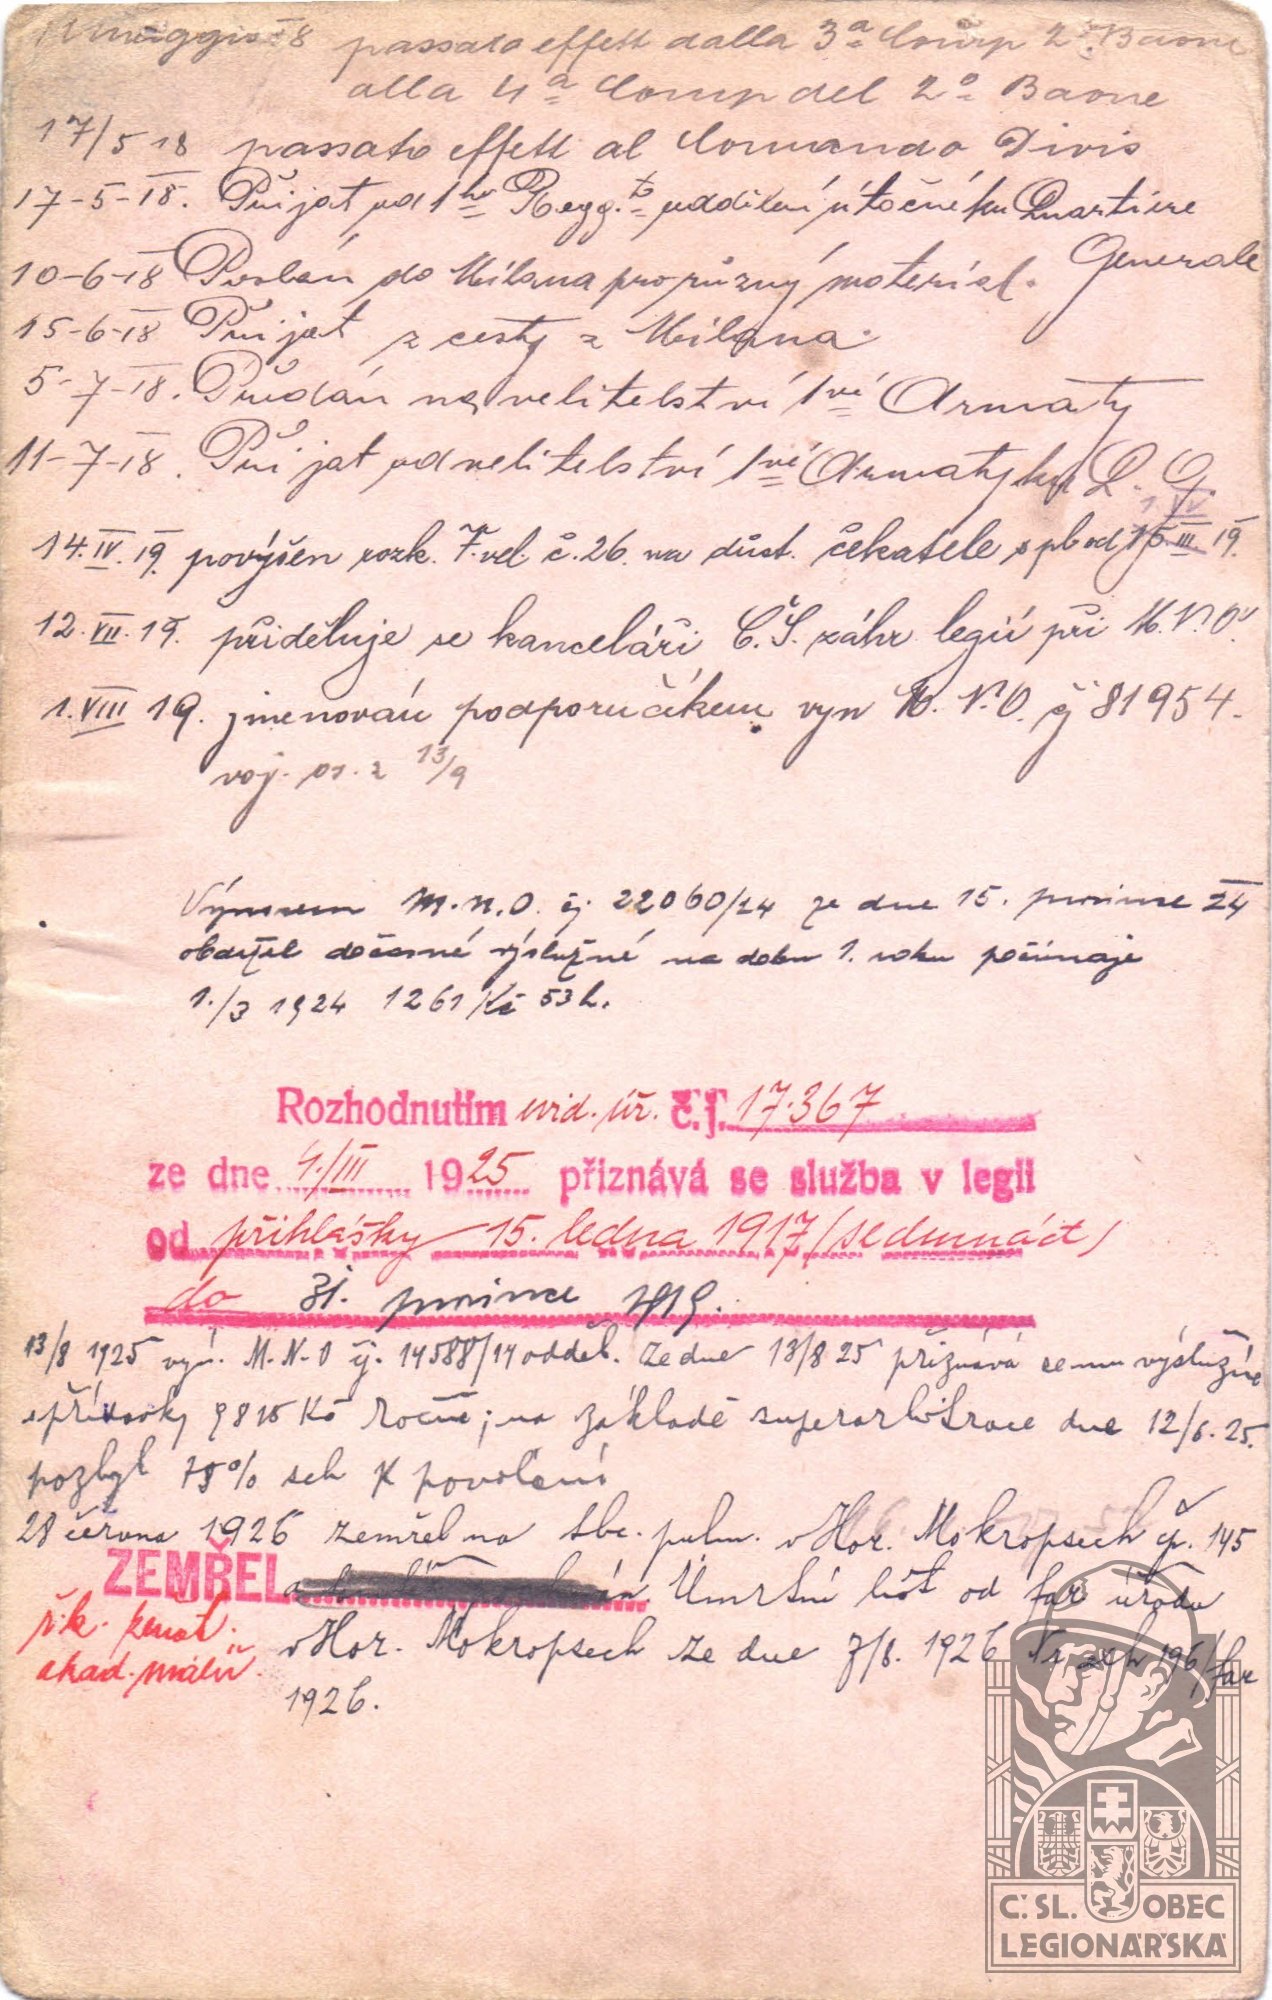 maggio 18 passato effett dalla 3ª Comp 2º Baone
alla 4ª Comp del 2º Baone
17/5 18 passato effett al Comando Divis
17-5-18. Přijat od 1ho Regg.to oddělení útočného ku Quartiere
Generale
10-6-18 Poslán do Milana pro různý materiál.
15-6-18 Přijat z cesty z Milana.
5-7-18. Přidán na velitelství 1vé Armáty
11-7-18. Přijat od velitelství 1vé Armáty ku Q. G.
1 IV
14.IV.19. povýšen rozk. 7. vel. č. 26. na důst. čekatele s pl. od 15 III 19.
12.VII.19. přiděluje se kanceláři Č.S. zahr. legií při M.N.O.
1.VIII 19. jmenován podporučíkem vyn M.N.O. čj 81954.
voj. os. z 13/9
Výnosem M.N.O. čj. 22060/14 ze dne 15. prosince 24
obdržel dočasné výslužné na dobu 1. roku počínaje
1./3 1924 1261 Kč 53 h.
Rozhodnutím evid. úř. č.j. 17.367
ze dne 4./III 1925 přiznává se služba v legii
od přihlášky 15. ledna 1917 (sedmnáct)
do 31. prosince 1919.
13/8 1925 vyn. M.N.O čj. 14588/14 odděl. ze dne 13/8 25 přiznává se mu výslužné
s přídavky 9815 Kč ročně; na základě superarbitrace dne 12/6. 25.
pozbyl 75% sch k povolání
28 června 1926 zemřel na tbc. pulm. v Hor. Mokropsech čp. 145
ZEMŘEL a Úmrtní list od far. úřadu
řík. penst. v Hor. Mokropsech ze dne 7/8. 1926 196/far
akad. malíř. 1926.
Č.SL. OBEC
LEGIONÁŘSKÁ